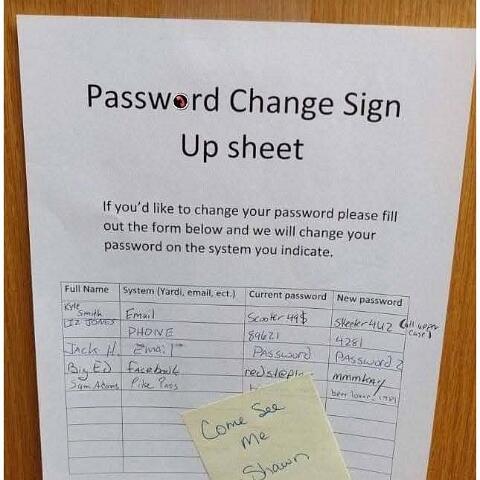 Password Change Sign
Up sheet
If you'd like to change your password please fill
out the form below and we will change your
password on the system you indicate.
Full Name System (Yardi, email, ect.) Current password New password
Kyle Smith Email Scooter49$ Skeeter4U2 (all upper case)
Liz Jones PHONE 89621 4281
Jack H. Email Password Password2
Big Ed facebook mmmkay
Sam Adams Pike Pass
Come See
Me
Shawn